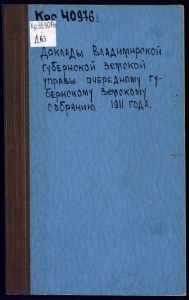 Кро 40976
Д63
Доклады Владимирской
губернской земской
управы очередному гу-
бернскому земскому
собранию 1911 года.